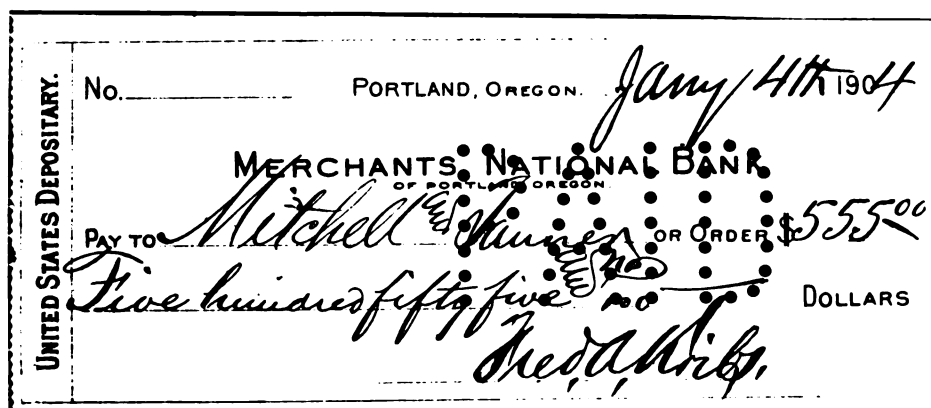 UNITED STATES DEPOSITARY.
No. PORTLAND, OREGON. Jany 4th 1904
MERCHANTS NATIONAL BANK
OF PORTLAND, OREGON
PAY TO Mitchell & Tanner OR ORDER $ 555⁰⁰
Five hundred fifty five & no/100 DOLLARS
Fred. A. Kribs.
PAID